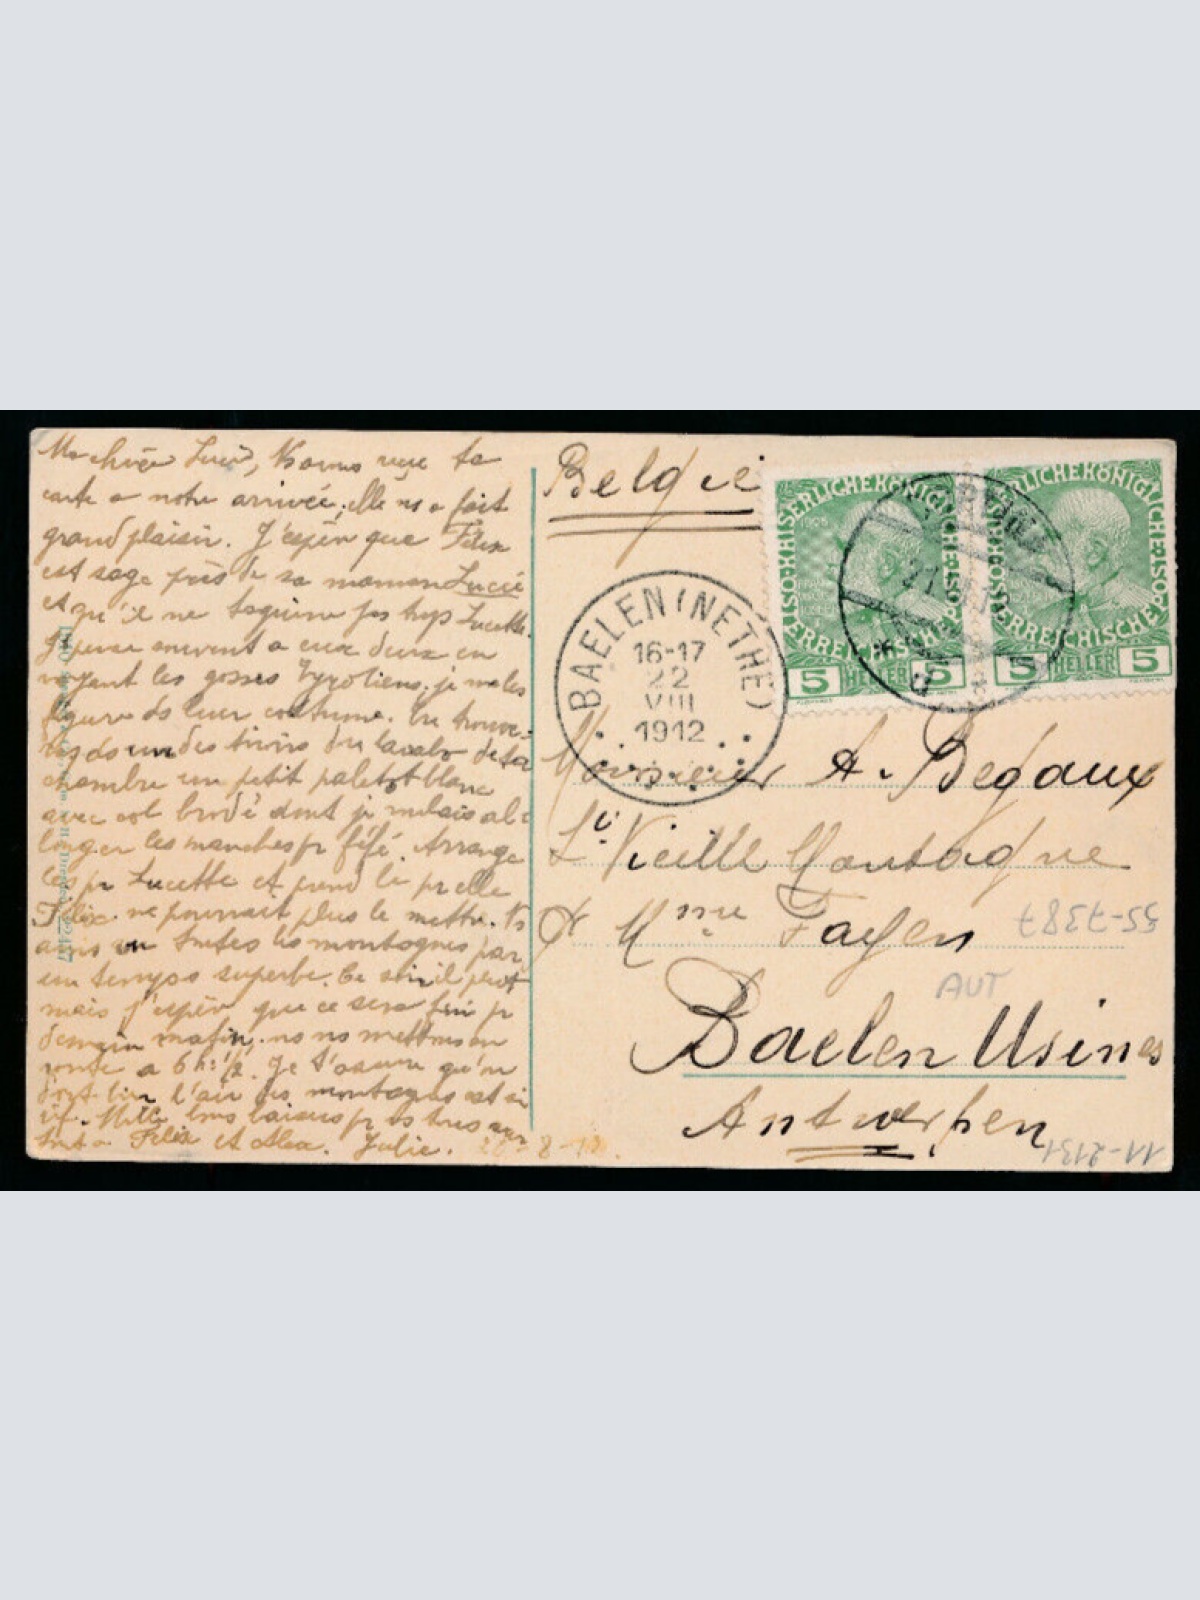 Ma chère Lucie, Ns avons reçu ta
carte a notre arrivée, elle ns a fait
grand plaisir. J'espère que Félix
est sage près de sa maman Lucie
et qu'il ne taquine pas trop Lucette.
Je pense souvent a eux deux en
voyant les gosses Tyroliens, je me les
figure ds leur costume. Tu trouve-
ras ds un des tiroirs du lavabo de ta
chambre un petit paletot blanc
avec col brodé dont je voulais al-
longer les manches pr féfé. Arrange
les pr Lucette et prend le pr elle
Félix ne pourrait plus le mettre. Ns
avons vu toutes les montagnes par
un temps superbe. Ce soir il pleut
mais j'espère que ce sera fini pr
demain matin, ns ns mettons en
route a 6 h. 1/2. Je t'assure qu'on
dort bien l'air des montagnes est si
vif. Mille bons baisers pr vs tous
Félix et Alex. Julie. 20-8-12.
Belgie
KAISERLICHE KÖNIGLICHE
ÖSTERREICHISCHE POST
5 HELLER 5
KAISERLICHE KÖNIGLICHE
ÖSTERREICHISCHE POST
5 HELLER 5
BAELEN (NETHE)
16-17
22
VIII
1912
Monsieur A. Begaux
Sté Vieille Montagne
& Mme Fayen
55-7387
AUT
Baelen Usines
Antwerpen
11-2131